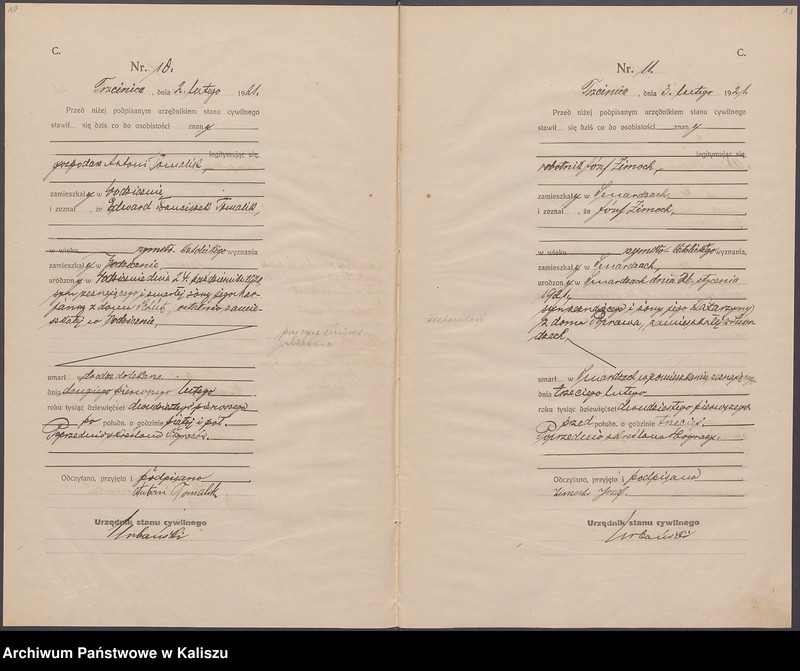 10
C.
Nr. 10.
Trzcinica, dnia 2. lutego 1921.
Przed niżej podpisanym urzędnikiem stanu cywilnego
stawił się dziś co do osobistości znany
legitymując się,
gospodarz Antoni Tomalik,
zamieszkały w Wodzicznie
i zeznał, że Edward Franciszek Tomalik,
w wieku rzymsko katolickiego wyznania
zamieszkały w Wodzicznie
urodzony w Wodzicznie dnia 24. października 1920
syn zeznającego i zmarłej żony jego
z domu ostatnio zamie-
szkałej w Wodzicznie,
umarł w
dnia pierwszego lutego
roku tysiąc dziewięćset dwudziestego pierwszego
po połudn. o godzinie piątej i pół.
Poprzednio skreślono
Odczytano, przyjęto i podpisano
Antoni Tomalik
Urzędnik stanu cywilnego
Urbański
11
C.
Nr. 11.
Trzcinica, dnia 3. lutego 1921.
Przed niżej podpisanym urzędnikiem stanu cywilnego
stawił się dziś co do osobistości znany
legitymując się,
robotnik Józef Zimoch,
zamieszkały w Smardzach,
i zeznał, że Józef Zimoch,
w wieku rzymsko katolickiego wyznania,
zamieszkały w Smardzach,
urodzony w Smardzach dnia 26. stycznia
1921,
syn zeznającego i żony jego Katarzyny
z domu zamieszkałej w Smar-
dzach,
umarł w Smardzach w pomieszkaniu zeznającego
dnia trzeciego lutego
roku tysiąc dziewięćset dwudziestego pierwszego
przed połudn. o godzinie trzeciej.
Poprzednio skreślono
Odczytano, przyjęto i podpisano
Zimoch Józef.
Urzędnik stanu cywilnego
Urbański
Archiwum Państwowe w Kaliszu